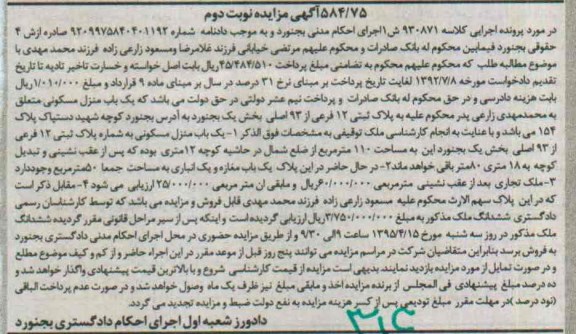 ۵۸۴/۷۵ آگهی مزایده نوبت دوم
در مورد پرونده اجرایی کلاسه ۹۳۰۸۷۱ ش۱ اجرای احکام مدنی بجنورد و به موجب دادنامه شماره ۹۲۰۹۹۷۵۸۴۰۴۰۱۱۹۲ صادره ازش ۴
حقوقی بجنورد فیمابین محکوم له بانک صادرات و محکوم علیهم مرتضی خیابانی فرزند غلامرضا ومسعود زارعی زاده فرزند محمد مهدی با
موضوع مطالبه طلب که محکوم علیهم محکوم به تضامنی مبلغ پرداخت ۴۵/۴۸۴/۵۱۰ریال بابت اصل خواسته و خسارت تاخیر تادیه تا تاریخ
تقدیم دادخواست مورخه ۱۳۹۲/۷/۸ لغایت تاریخ پرداخت بر مبنای نرخ ۳۱ درصد در سال بر مبنای ماده ۹ قرارداد و مبلغ ۱/۰۱۰/۰۰۰ریال
بابت هزینه دادرسی و در حق محکوم له بانک صادرات و پرداخت نیم عشر دولتی در حق دولت می باشد که یک باب منزل مسکونی متعلق
به محمدمهدی زارعی پدر محکوم علیه به پلاک ثبتی ۱۲ فرعی از ۹۳ اصلی بخش یک بجنورد به آدرس بجنورد کوچه شهید دستپاک پلاک
۱۵۴ می باشد و با عنایت به انجام کارشناسی ملک توقیفی به مشخصات فوق الذکر ۱-یک باب منزل مسکونی به شماره پلاک ثبتی ۱۲ فرعی
از ۹۳ اصلی بخش یک بجنورد این به مساحت ۱۱۰ مترمربع از ضلع شمال در حاشیه کوچه ۱۲متری بوده که پس از عقب نشینی و تبدیل
کوچه به ۱۸ متری ۸۰متر باقی خواهد ماند ۲- در حال حاضر در این پلاک یک باب مغازه و یک انباری به مساحت جمعا ۵۰مترمربع وجوددارد
۳-ملک تجاری بعد از عقب نشینی مترمربعی ۶۰/۰۰۰/۰۰۰ریال و مابقی ان متر مربعی ۲۵/۰۰۰/۰۰۰ ارزیابی می شود ۴-مقابل ذکر است
که در این پلاک سهم الارث محکوم علیه مسعود زارعی زاده فرزند محمد مهدی قابل فروش و مزایده می باشد که توسط کارشناسان رسمی
دادگستری ششدانگ ملک مذکور به مبلغ ۳/۷۵۰/۰۰۰/۰۰۰ریال ارزیابی گردیده است و اینکه پس از سیر مراحل قانونی مقرر گردیده ششدانگ
ملک مذکور در روز سه شنبه مورخ ۱۳۹۵/۴/۱۵ ساعت ۹الی ۹/۳۰ و از طریق مزایده حضوری در محل اجرای احکام مدنی دادگستری بجنورد
به فروش برسد بنابراین متقاضیان شرکت در مراسم مزایده می توانند پنج روز قبل از موعد مقرر در این اجراء حاضر و از کم و کیف موضوع مطلع
و در صورت تمایل از مورد مزایده بازدید نمایند. بدیهی است مزایده از قیمت کارشناسی شروع و با بالاترین قیمت پیشنهادی واگذار خواهد شد و
ده درصد مبلغ پیشنهادی فی المجلس از برنده مزایده اخذ و مابقی مبلغ نیز ظرف یک ماه وصول خواهد شد و در صورت عدم پرداخت الباقی
(نود درصد)در مهلت مقرر مبلغ تودیعی پس از کسر هزینه مزایده به نفع دولت ضبط و مزایده تجدید می گردد.
دادورز شعبه اول اجرای احکام دادگستری بجنورد